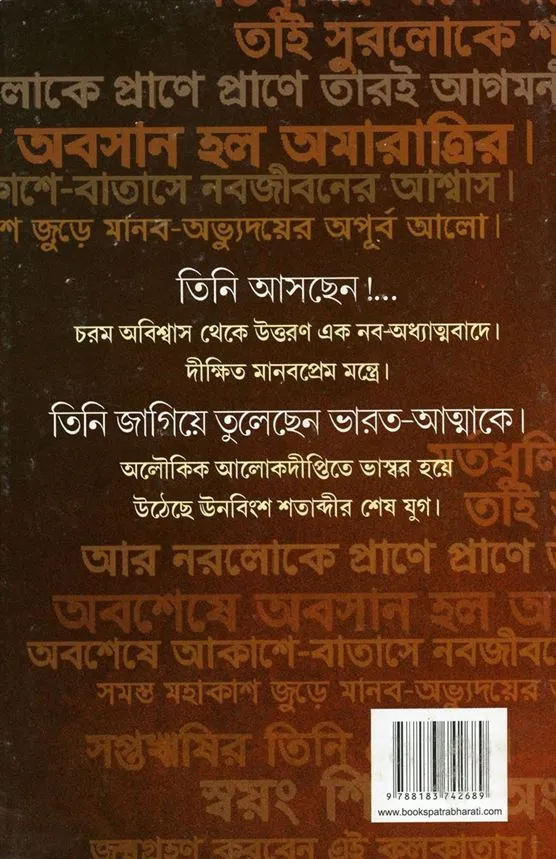 তাই সুরলোকে
লোকে প্রাণে প্রাণে তারই আগমন
অবসান হল অমারাত্রির।
কাশে-বাতাসে নবজীবনের আশ্বাস।
শ জুড়ে মানব-অভ্যুদয়ের অপূর্ব আলো।
তিনি আসছেন!...
চরম অবিশ্বাস থেকে উত্তরণ এক নব-অধ্যাত্মবাদে।
দীক্ষিত মানবপ্রেম মন্ত্রে।
তিনি জাগিয়ে তুলেছেন ভারত-আত্মাকে।
অলৌকিক আলোকদীপ্তিতে ভাস্বর হয়ে
উঠেছে ঊনবিংশ শতাব্দীর শেষ যুগ।
মর্তধূলি
তাই
আর নরলোকে প্রাণে প্রাণে
অবশেষে অবসান হল
অবশেষে আকাশে-বাতাসে নবজীবনে
সমস্ত মহাকাশ জুড়ে মানব-অভ্যুদয়ের
সপ্তঋষির তিনি
স্বয়ং
9 788183 742689
www.bookspatrabharati.com
জন্মগ্রহণ করবেন এই কলকাতায়।